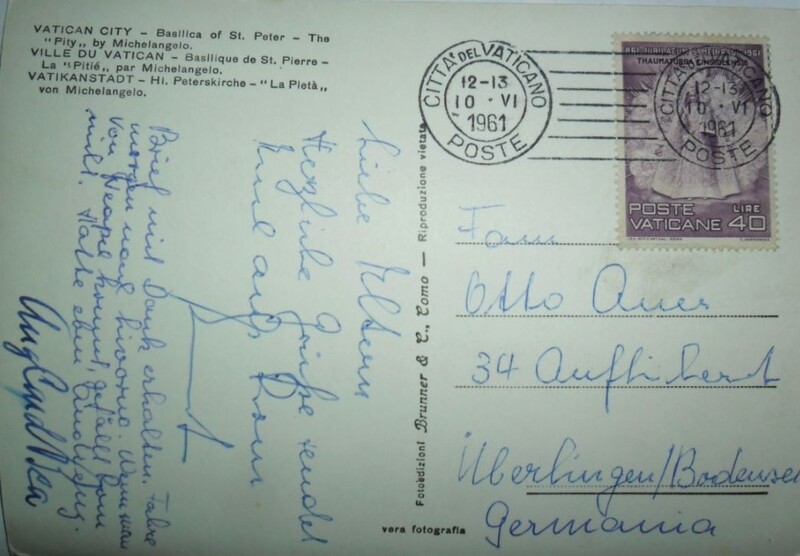 VATICAN CITY - Basilica of St. Peter - The
"Pity„ by Michelangelo.
VILLE DU VATICAN - Basilique de St. Pierre -
La "Pitié„ par Michelangelo.
VATIKANSTADT - Hl. Peterskirche - "La Pietà„
von Michelangelo.
Liebe Eltern
Herzliche Grüße sendet
Euch aus Rom
Brief mit Dank erhalten. Fahre
morgen nach Livorno. Wenn man
von Neapel kommt, gefällt Rom
nicht. Hatte eben
Und
Fotoedizioni Brunner & C., Como — Riproduzione vietata
vera fotografia
CITTÀ DEL VATICANO
12-13
10 · VI
1961
POSTE
THAUMATURGA
POSTE
VATICANE
LIRE
40
CITTÀ DEL VATICANO
12-13
10 · VI
1961
POSTE
Fam
Otto Auer
34 Aufkirch
Überlingen/Bodensee
Germania